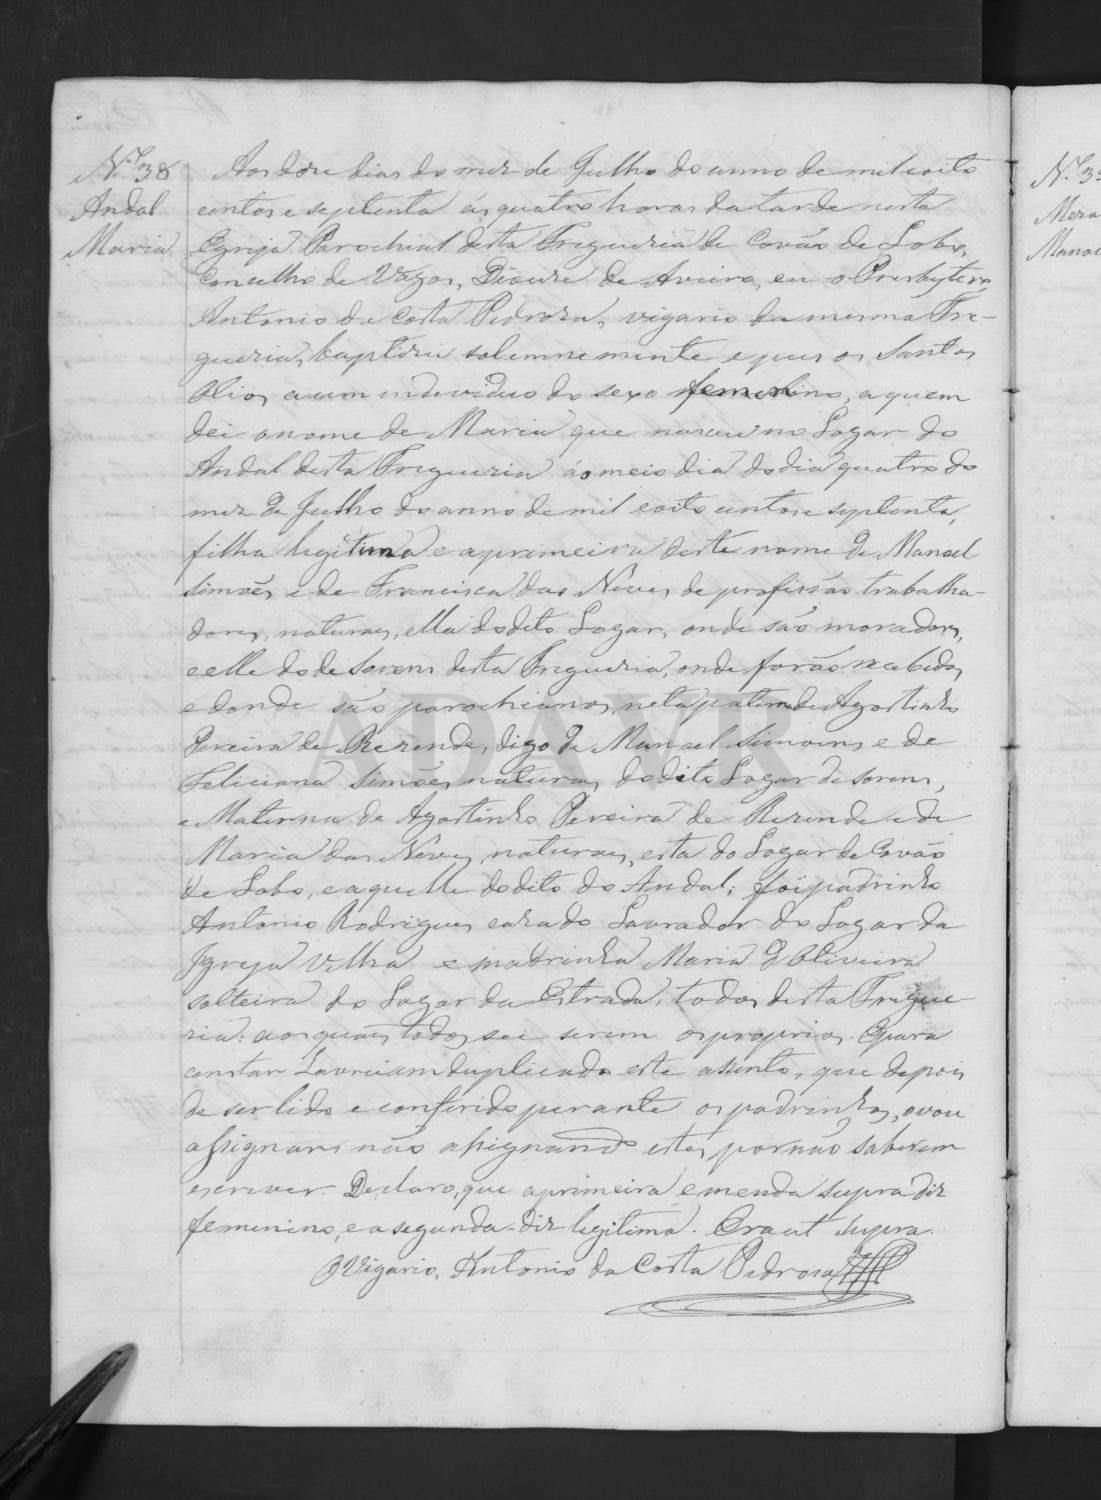 N.º 38
Andal
Maria
Aos doze dias do mez de Julho do anno de mil e oito
centos e septenta ás quatro horas da tarde nesta
Egreja Parochial desta Freguezia de Covão de Lobo,
Concelho de Vagos, Diocese de Aveiro, eu o Presbytero
Antonio da Costa Pedroza, vigario da mesma Fre-
guezia, baptizei solemnemente e puz os Santos
Olios a um individuo do sexo femenino, a quem
dei o nome de Maria que nasceu no Logar do
Andal desta Freguezia áo meio dia do dia quatro do
mez de Julho do anno de mil e oito centos e septenta,
filha legitima e a primeira deste nome de Manoel
Simões e de Francisca das Neves, de profissão trabalha-
dores, naturaes, ella do dito Logar, onde são moradores,
e elle do de Sorens desta Freguezia, onde forão recebidos
e donde são parochianos, neta paterna de Agostinho
Pereira de Rezende, digo de Manoel Simoens e de
Feliciana Simões, naturaes do dito Logar de Sorens,
e Materna de Agostinho Pereira de Rezende e de
Maria das Neves, naturaes, esta do Logar de Covão
de Lobo, e aquelle do dito do Andal; foi padrinho
Antonio Rodrigues casado Lavrador do Logar da
Igreja Velha e madrinha Maria d'Oliveira
solteira do Logar da Estrada, todos desta Fregue-
zia: aos quaes todos sei serem os proprios. E para
constar Lavrei em duplicado este assento, que depois
de ser lido e conferido perante os padrinhos, o vou
assignar, não assignando estes por não saberem
escrever. Declaro, que a primeira emenda supra diz
femenino, e a segunda diz legitima. Era ut supra.
O Vigario, Antonio da Costa Pedroza
N.º 3
Mera
Manoe
ADAVR